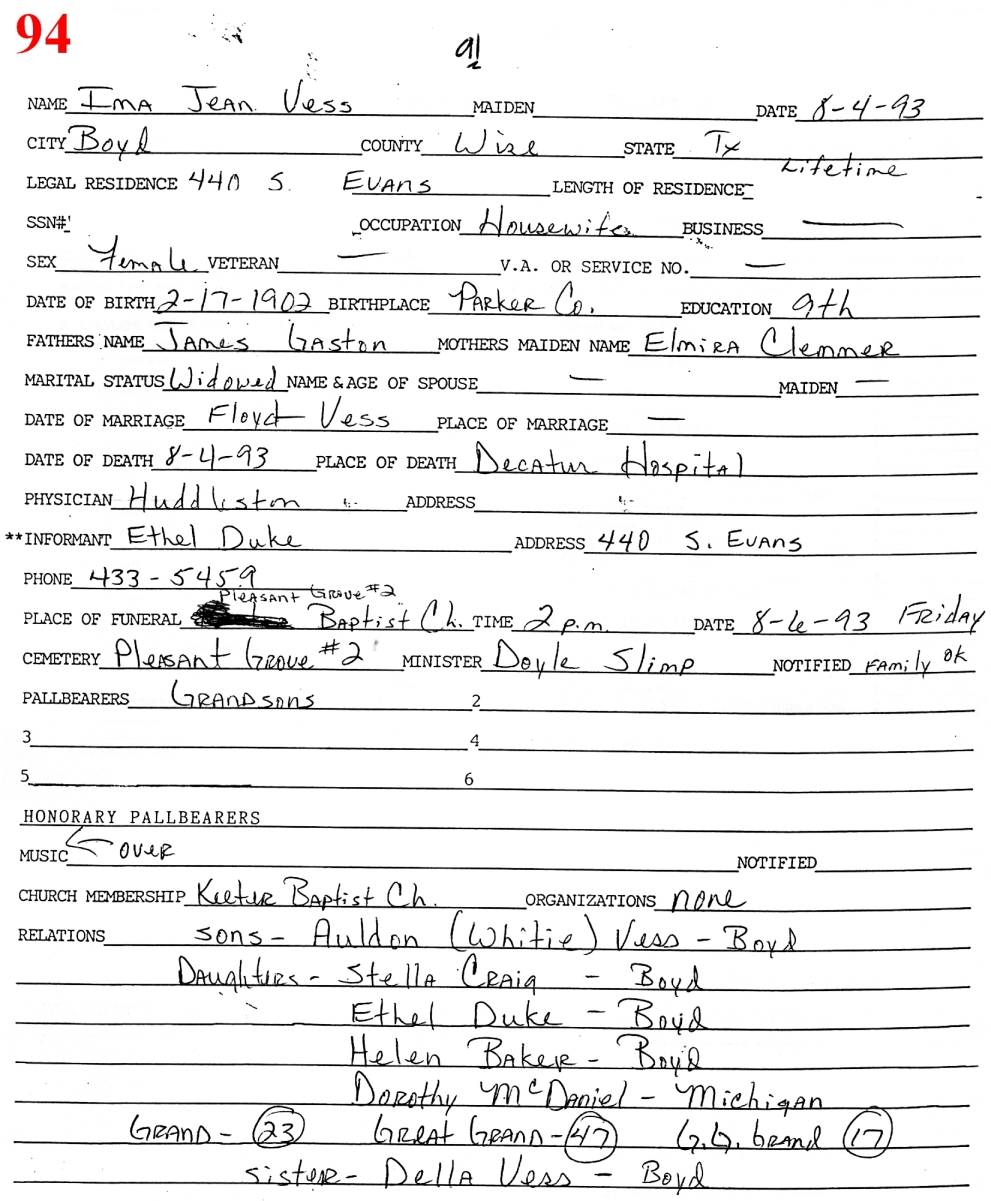 94
91
NAME Ima Jean Vess MAIDEN DATE 8-4-93
CITY Boyd COUNTY Wise STATE Tx
LEGAL RESIDENCE 440 S. Evans LENGTH OF RESIDENCE Lifetime
SSN# OCCUPATION Housewife BUSINESS —
SEX Female VETERAN — V.A. OR SERVICE NO. —
DATE OF BIRTH 2-17-1902 BIRTHPLACE Parker Co. EDUCATION 9th
FATHERS NAME James Gaston MOTHERS MAIDEN NAME Elmira Clemmer
MARITAL STATUS Widowed NAME & AGE OF SPOUSE — MAIDEN —
DATE OF MARRIAGE Floyd Vess PLACE OF MARRIAGE —
DATE OF DEATH 8-4-93 PLACE OF DEATH Decatur Hospital
PHYSICIAN Huddliston ADDRESS
**INFORMANT Ethel Duke ADDRESS 440 S. Evans
PHONE 433-5459
PLACE OF FUNERAL Pleasant Grove #2 Baptist Ch. TIME 2 p.m. DATE 8-6-93 Friday
CEMETERY Pleasant Grove #2 MINISTER Doyle Slimp NOTIFIED Family ok
PALLBEARERS Grandsons 2
3 4
5 6
HONORARY PALLBEARERS
MUSIC over NOTIFIED
CHURCH MEMBERSHIP Keeter Baptist Ch. ORGANIZATIONS none
RELATIONS sons - Auldon (Whitie) Vess - Boyd
Daughters - Stella Craig - Boyd
Ethel Duke - Boyd
Helen Baker - Boyd
Dorothy McDaniel - Michigan
Grand - 23 Great Grand - 47 G.G. Grand 17
sister - Della Vess - Boyd